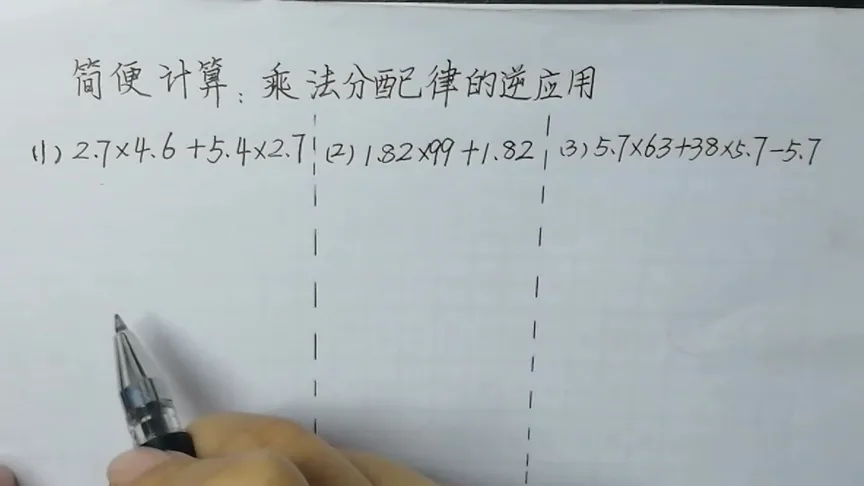 简便计算：乘法分配律的逆应用
(1) 2.7×4.6+5.4×2.7
(2) 1.82×99+1.82
(3) 5.7×63+38×5.7-5.7